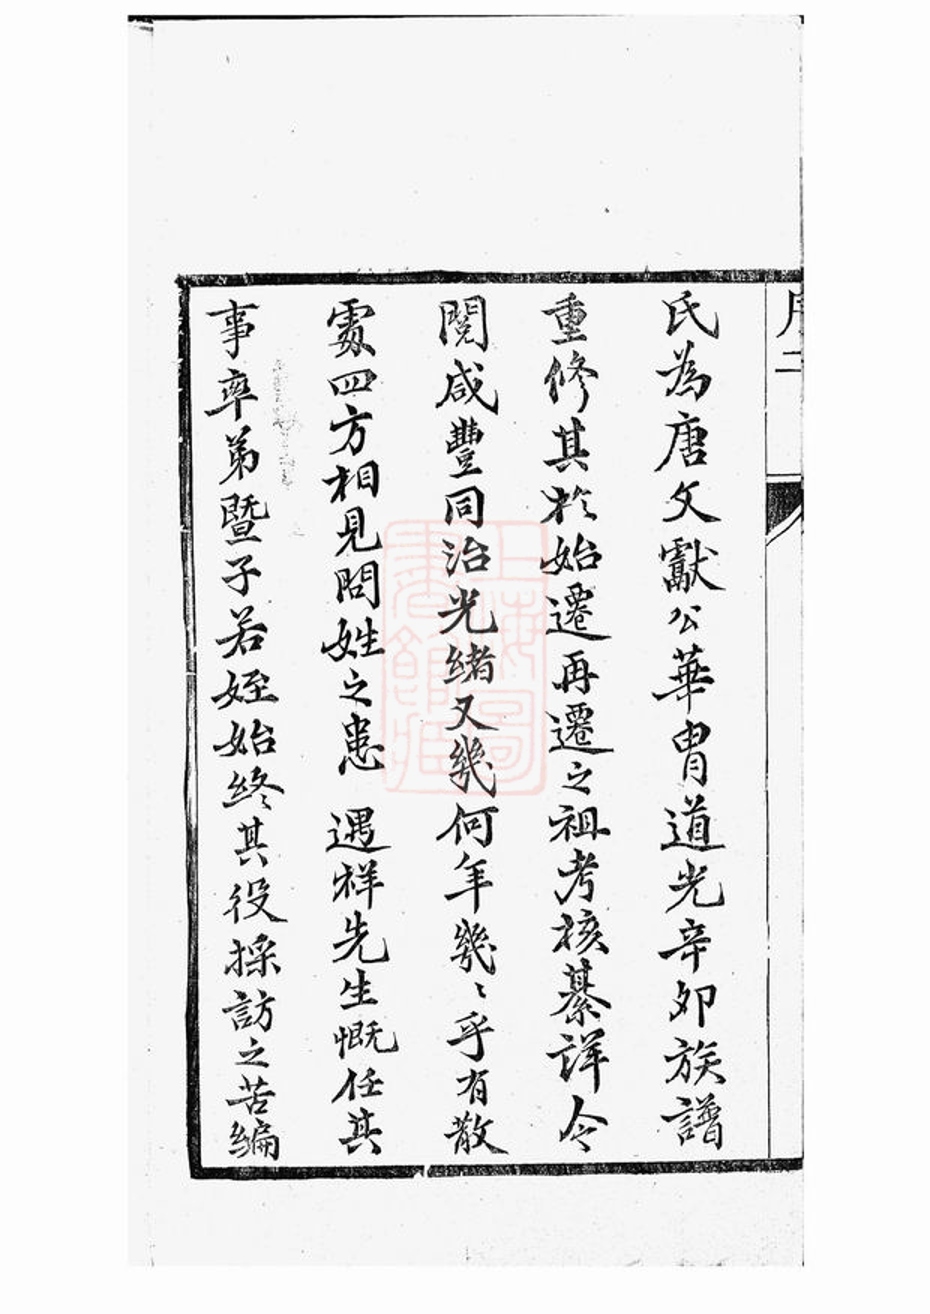 序二
氏為唐文獻公華胄道光辛卯族譜
重修其於始遷再遷之祖考核綦詳今
閱咸豐同治光緒又幾何年幾〻乎有散
處四方相見問姓之患 遇祥先生慨任其
事率弟暨子若姪始終其役採訪之苦編
上海圖書館藏